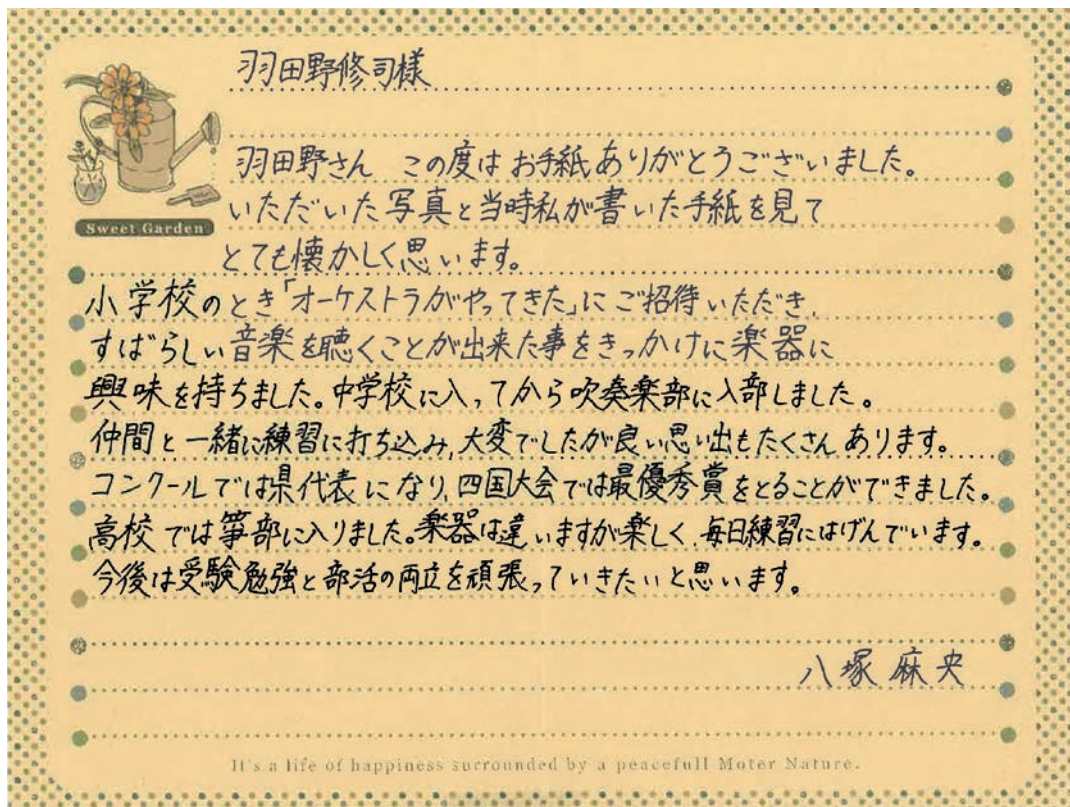 羽田野修司様
羽田野さん この度はお手紙ありがとうございました。
いただいた写真と当時私が書いた手紙を見て
とても懐かしく思います。
Sweet Garden
小学校のとき「オーケストラがやってきた」にご招待いただき、
すばらしい音楽を聴くことが出来た事をきっかけに楽器に
興味を持ちました。中学校に入ってから吹奏楽部に入部しました。
仲間と一緒に練習に打ち込み、大変でしたが良い思い出もたくさんあります。
コンクールでは県代表になり、四国大会では最優秀賞をとることができました。
高校では箏部に入りました。楽器は違いますが楽しく、毎日練習にはげんでいます。
今後は受験勉強と部活の両立を頑張っていきたいと思います。
八塚麻央
It's a life of happiness surrounded by a peacefull Moter Nature.